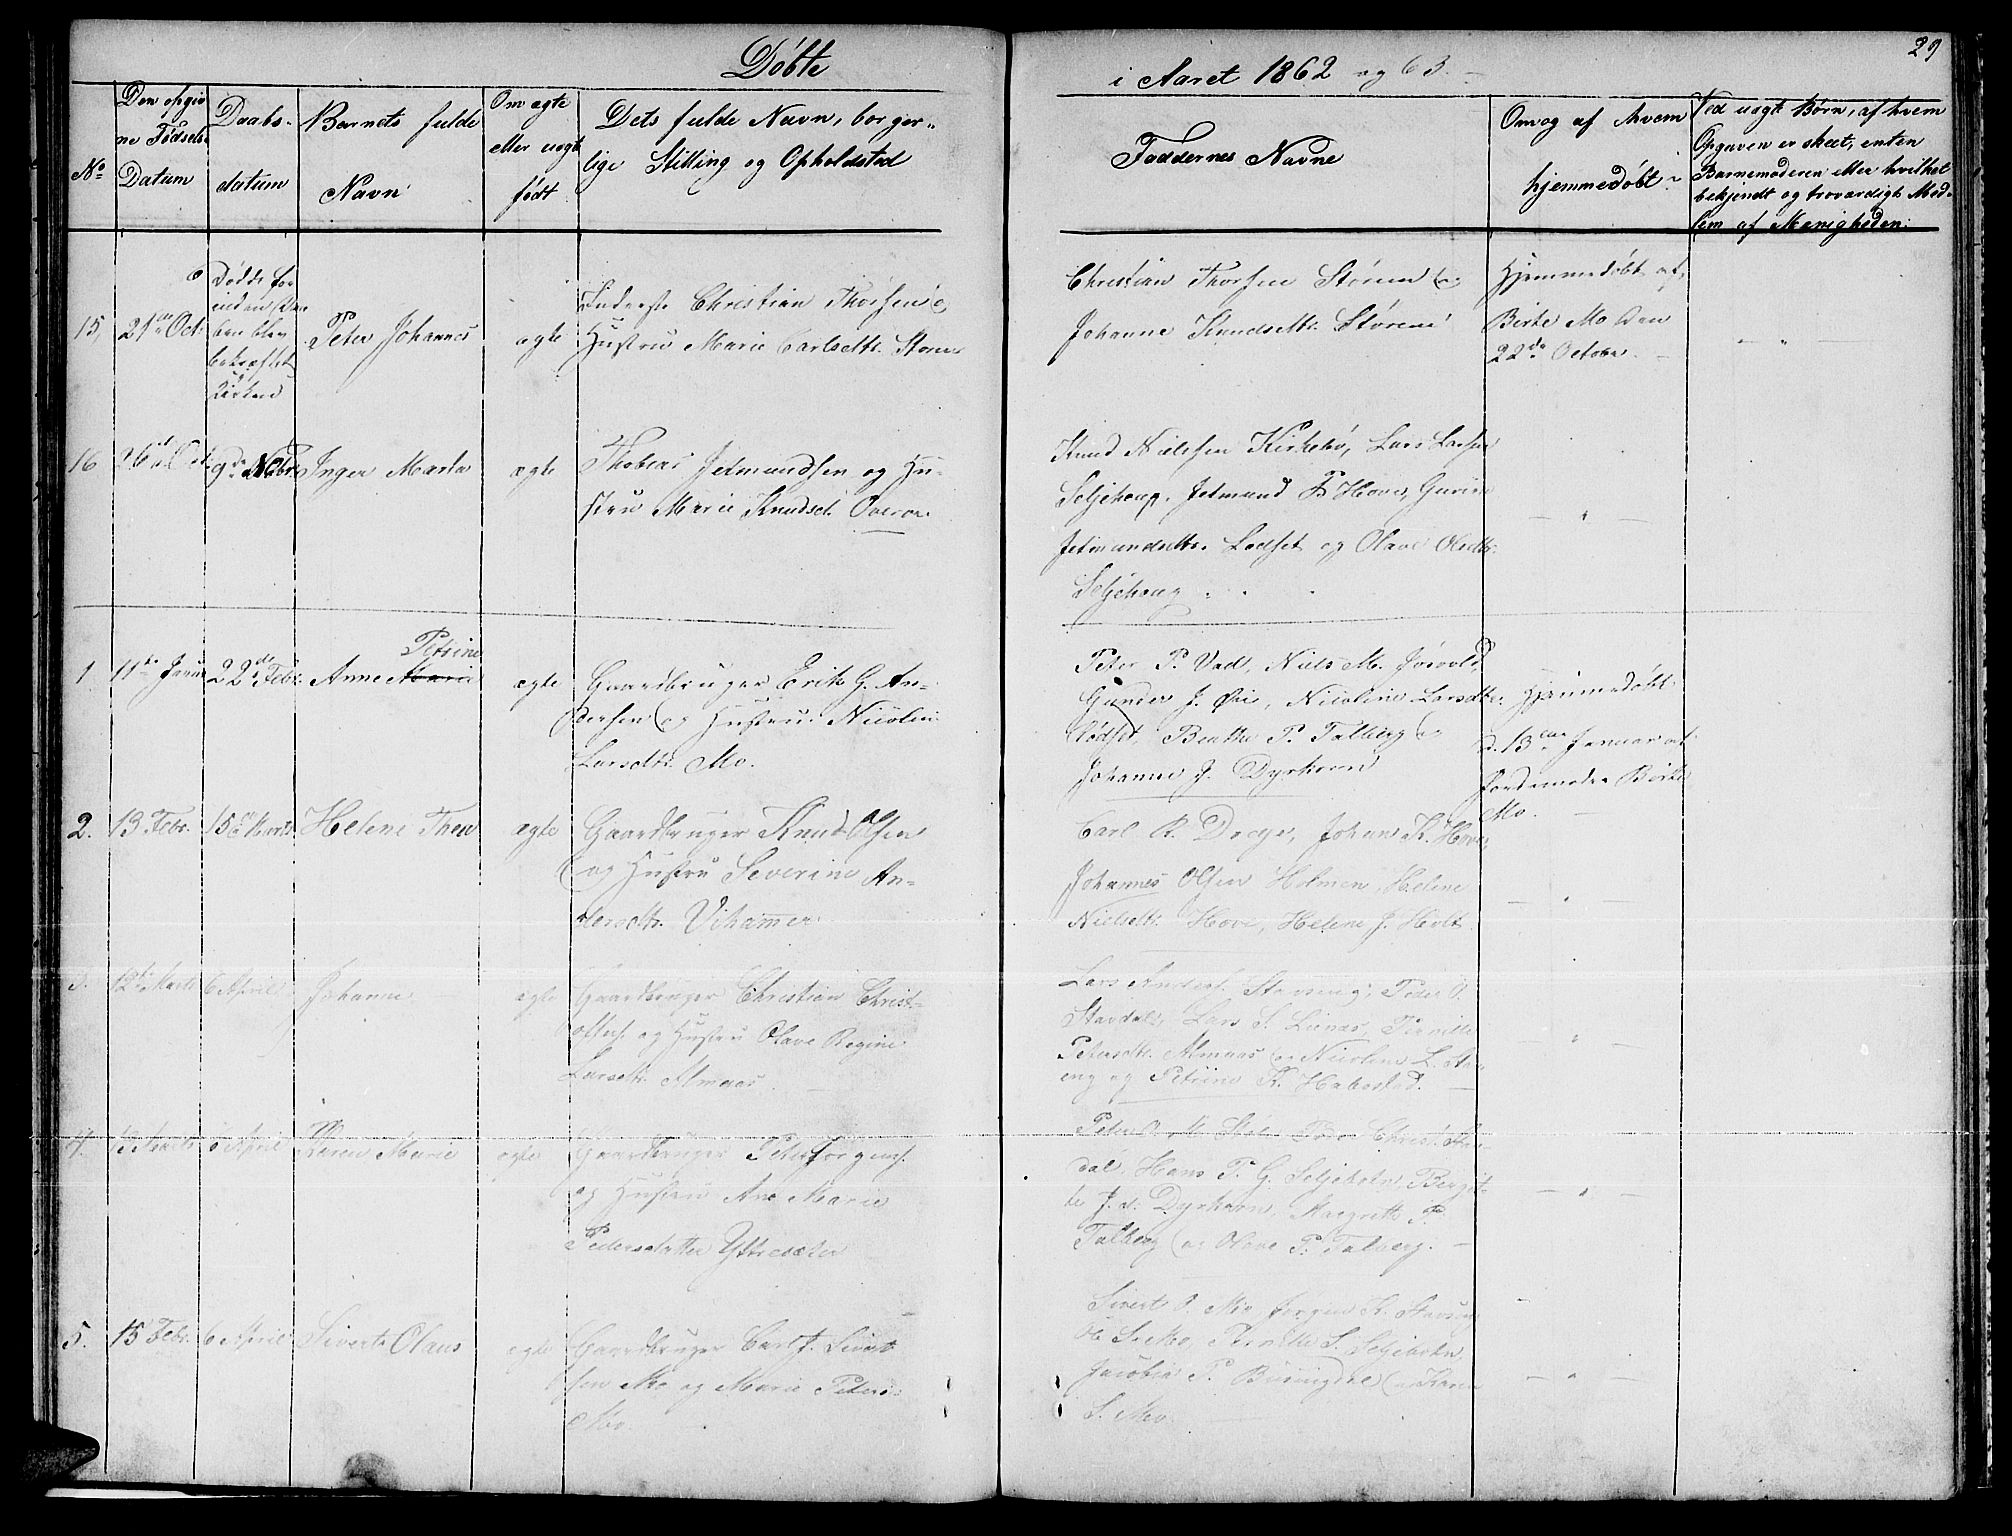 29
Døbte
i Aaret 1862 og 63.
No
Den opgiv
ne Fødsels-
Datum
Daabs-
datum
Barnets fulde
Navn
Om ægte
eller uægt
født
Dets fulde Navn, borger-
lige Stilling og Opholdsted
Faddernes Navne
Om og af hvem
hjemmedøbt
Ved uægt Børn, af hvem
Opgaven er skeet, enten
Barnemoderen eller hvilket
bekjendt og troværdigt Med-
lem af Menigheden.
15, 21 Oct.
Døde for
inden Daa
ben blev
bekræftet
i
Kirken
Peter Johannes
ægte
Inderst Christian Thorsen
Hustru Marie Carlsdtr. Støren
Christian Thorsen Støren og
Johanne Knudsdtr. Støren
Hjemmedøbt af
Birte Mo den
22de October
16 26 Oct. 9de Nobr. Inger Marta
ægte
Thobias Jetmundsen og Hu-
stru Marie Knudsd.
Knud Nielsen Kirkebø, Lars Larsen
Seljehoug, Jetmund P. Hove, Gurine
Jetmundsdtr. Lodset og Olave Olsdtr.
Seljehoug
1. 11te Januar 22de Febr. Anne Marie
Petrine
ægte
Gaardbruger Erik G. An-
dersen og Hustru Nicoline
Larsdtr. Mo.
Peter P. Vad, Niels M.
Gunder J. Øie, Nicoline Larsdtr.
Lodset, Benthe P. Talberg og
Johanne J. Dyrkorn
Hjemmedøbt
d. 13 Januar af
Jordemoder Birte
Mo.
2. 13 Febr. 15 Marts Helene Thea
ægte
Gaardbruger Knud Olsen
og Hustru Severine An-
dersdtr. Vikammer
Carl R. Drage, Johan K. Hove,
Johannes Olsen Holmen, Helene
Nielsdtr. Hove, Helene J. Hovt
3. 12te Marts 6 April Johanne
ægte
Gaardbruger Christian Christ-
offers. og Hustru Olave Regine
Larsdtr. Almaas
Lars Anders. Stavseng, Peder O.
Stavdal, Lars S. Lienæs, Pernille
Petersdtr. Almaas og Nicoline L. Stav-
eng og Petrine K. Habostad.
4. 13 Marts 6 April Karen Marie
ægte
Gaardbruger Peter Jørgens.
og Hustru Ane Marie
Pedersdatter Ytresæter
dal, Hans P. G. Seljeholm, Bergit-
te J.d. Dyrkorn, Margrethe P.
Talberg og Olave P. Talberg.
5. 15 Febr. 6 April Sivert Olaus
ægte
Gaardbruger Carl J. Sivert
sen Mo og Marie Peters-
Mo
Sivert O. Mo, Jørgen K. Stavseng
Ole S. Mo, Pernille S. Seljeholm,
Jacobia P. Buringdal og Karen
S. Mo